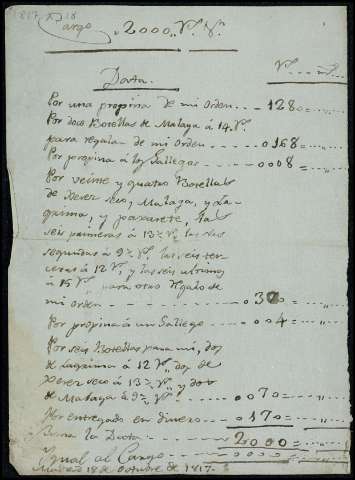 Cargo 2000,, Rs. Vn.
Data.
Por una propina de mi orden 128
Por doce Botellas de Malaga á 14 rs.
para regalar de mi orden 0168
Por propina á los Gallegos 008
Por veinte y quatro Botellas
de Xerez seco, Malaga, y La-
grima, y paxarete, las
seis primeras á 13 rs. las seis
segundas á 9 rs. las seis ter-
ceras á 12 rs. y las seis ultimas
á 15 rs. para otro regalo de
mi orden
Por propina á un Gallego 004
Por seis Botellas para mi, dos
de Lagrima á 12 rs. dos de
Xerez seco á 13 rs. y dos
de Malaga á 9 rs. 070
Por entregado en dinero
Suma la Data 2000
Ygual al Cargo
Madrid 18 de Octubre de 1817.